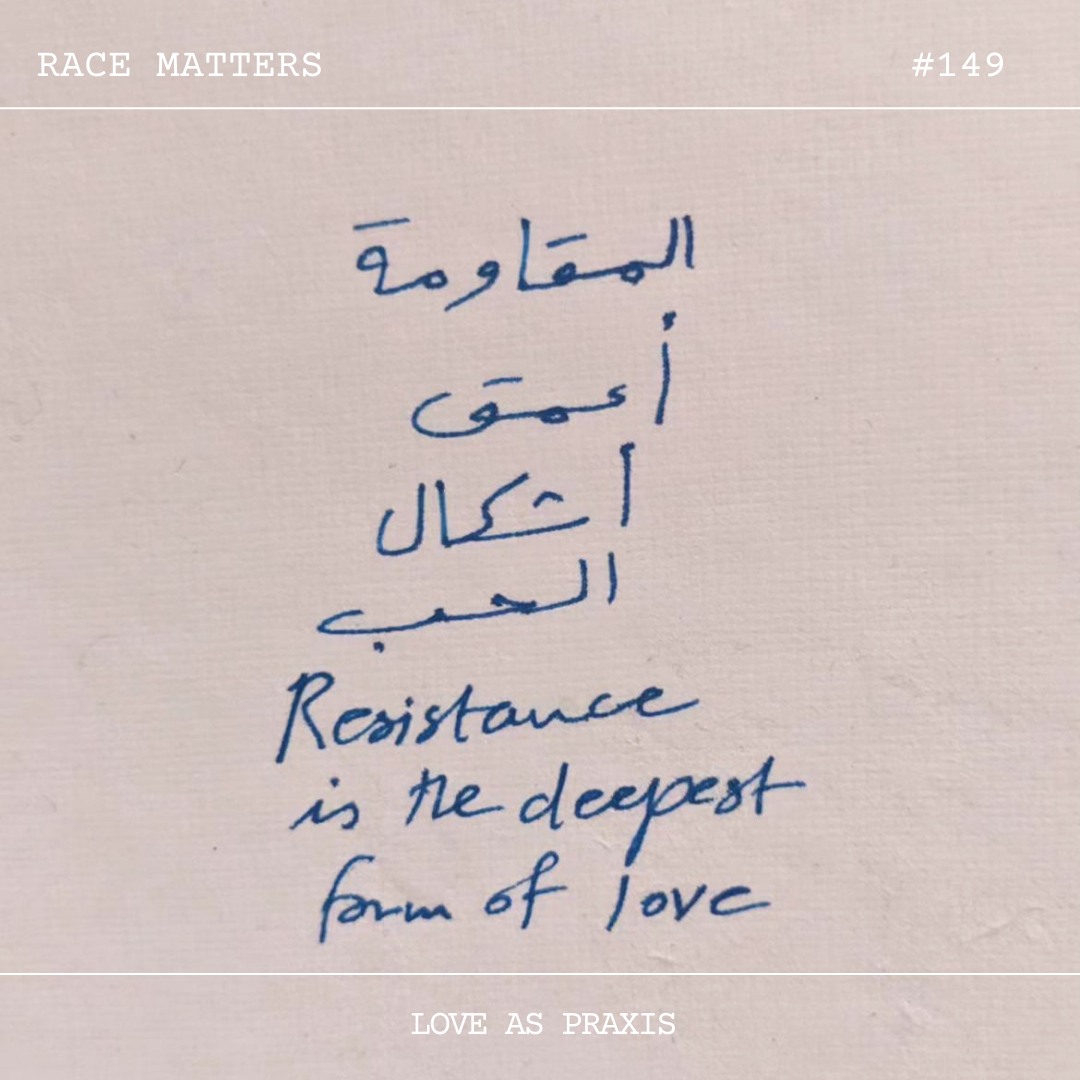 RACE MATTERS #149
المقاومة
أعمق
أشكال
الحب
Resistance
is the deepest
form of love
LOVE AS PRAXIS